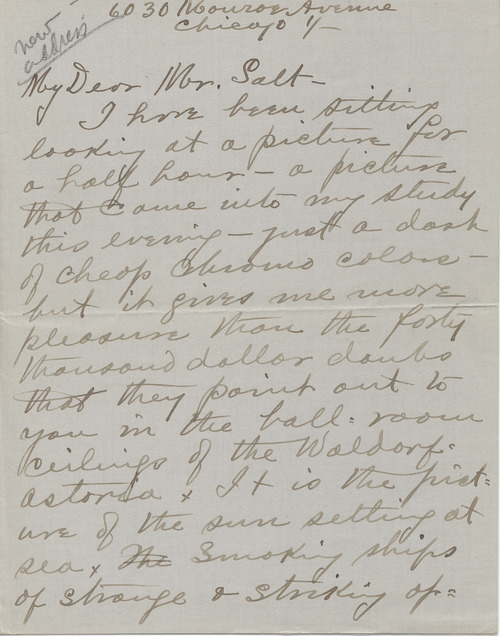 new
address
6030 Monroe Avenue
Chicago
My Dear Mr. Salt—
I have been sitting
looking at a picture for
a half hour — a picture
that came into my study
this evening — just a dash
of cheap chromo colors —
but it gives me more
pleasure than the forty
thousand dollar daubs
that they point out to
you in the ball-room
ceilings of the Waldorf-
astoria x It is the pict-
ure of the sun setting at
sea x The Smoking ships
of strange & striking op=